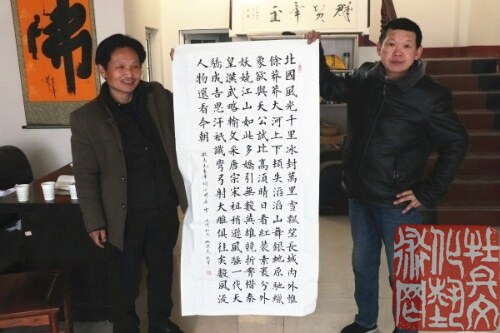 佛
群賢畢至
北國風光千里冰封萬里雪飄望長城内外惟
餘莽莽大河上下頓失滔滔山舞銀蛇原馳蠟
象欲與天公試比高須晴日看紅裝素裹分外
妖嬈江山如此多嬌引無數英雄競折腰惜秦
皇漢武略輸文采唐宗宋祖稍遜風騷一代天
驕成吉思汗衹識彎弓射大雕俱往矣數風流
人物還看今朝